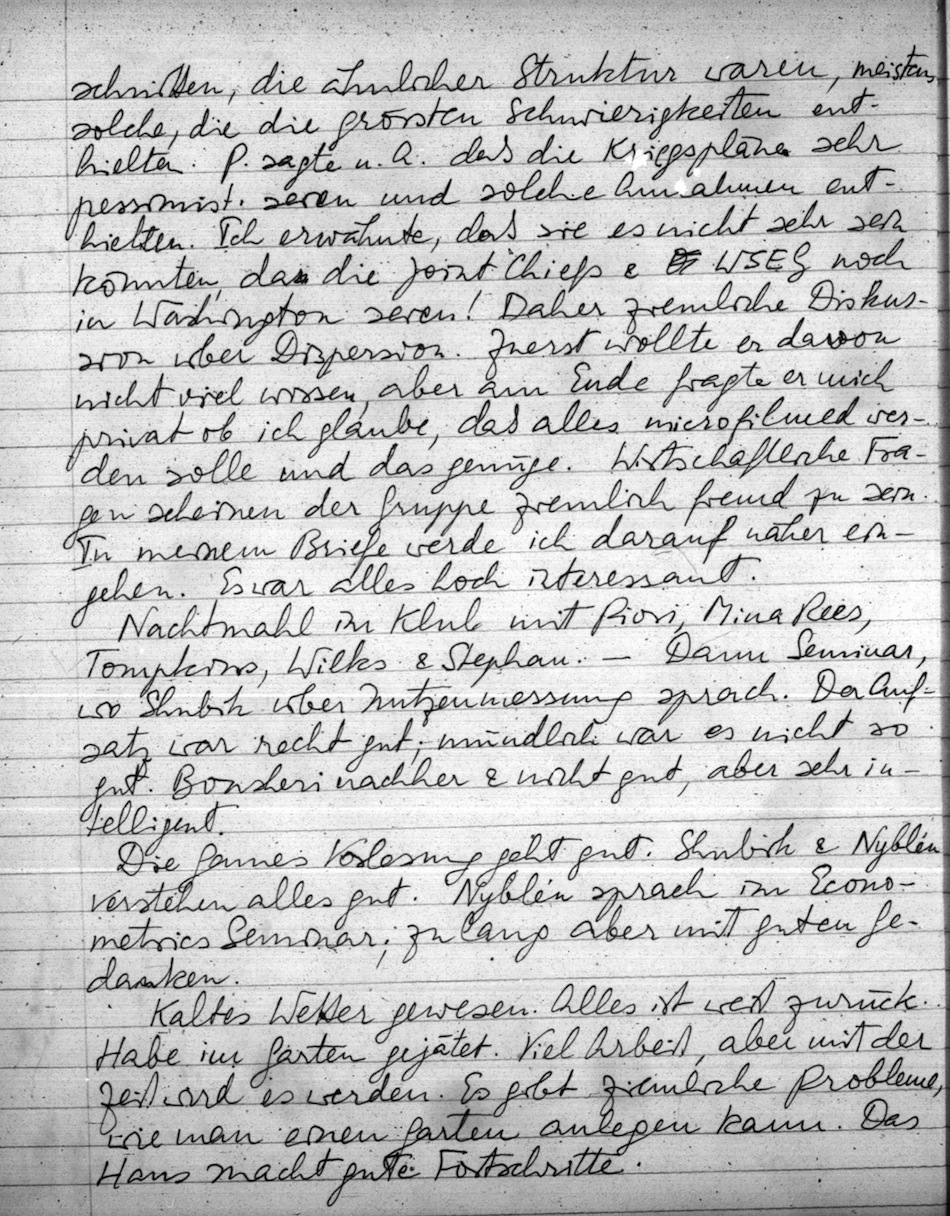 schnitten, die ähnlicher Struktur waren, meistens
solche, die die grössten Schwierigkeiten ent-
hielten. P. sagte u. A. dass die Kriegspläne sehr
pessimist. seien und solche Annahmen ent-
hielten. Ich erwähnte, dass sie es nicht sehr sein
könnten, da die Joint Chiefs & WSEG noch
in Washington seien! Daher ziemliche Diskus-
sion über Dispersion. Zuerst wollte er davon
nicht viel wissen, aber am Ende fragte er mich
privat ob ich glaube, dass alles microfilmed wer-
den solle und das genüge. Wirtschaftliche Fra-
gen scheinen der Gruppe ziemlich fremd zu sein.
In meinem Briefe werde ich darauf näher ein-
gehen. Es war alles hoch interessant.
Nachtmahl im Klub mit Piori, Mina Rees,
Tompkins, Wilks & Stephan. — Dann Seminar,
wo Shubik über Nutzenmessung sprach. Der Auf-
satz war recht gut; mündlich war es nicht so
gut. nachher & nicht gut, aber sehr in-
telligent.
Die Games Vorlesung geht gut. Shubik & Nyblén
verstehen alles gut. Nyblén sprach im Econo-
metrics Seminar; zu lang aber mit guten Ge-
danken.
Kaltes Wetter gewesen. Alles ist weit zurück.
Habe im Garten gejätet. Viel Arbeit, aber mit der
Zeit wird es werden. Es gibt ziemliche Probleme,
wie man einen Garten anlegen kann. Das
Haus macht gute Fortschritte.